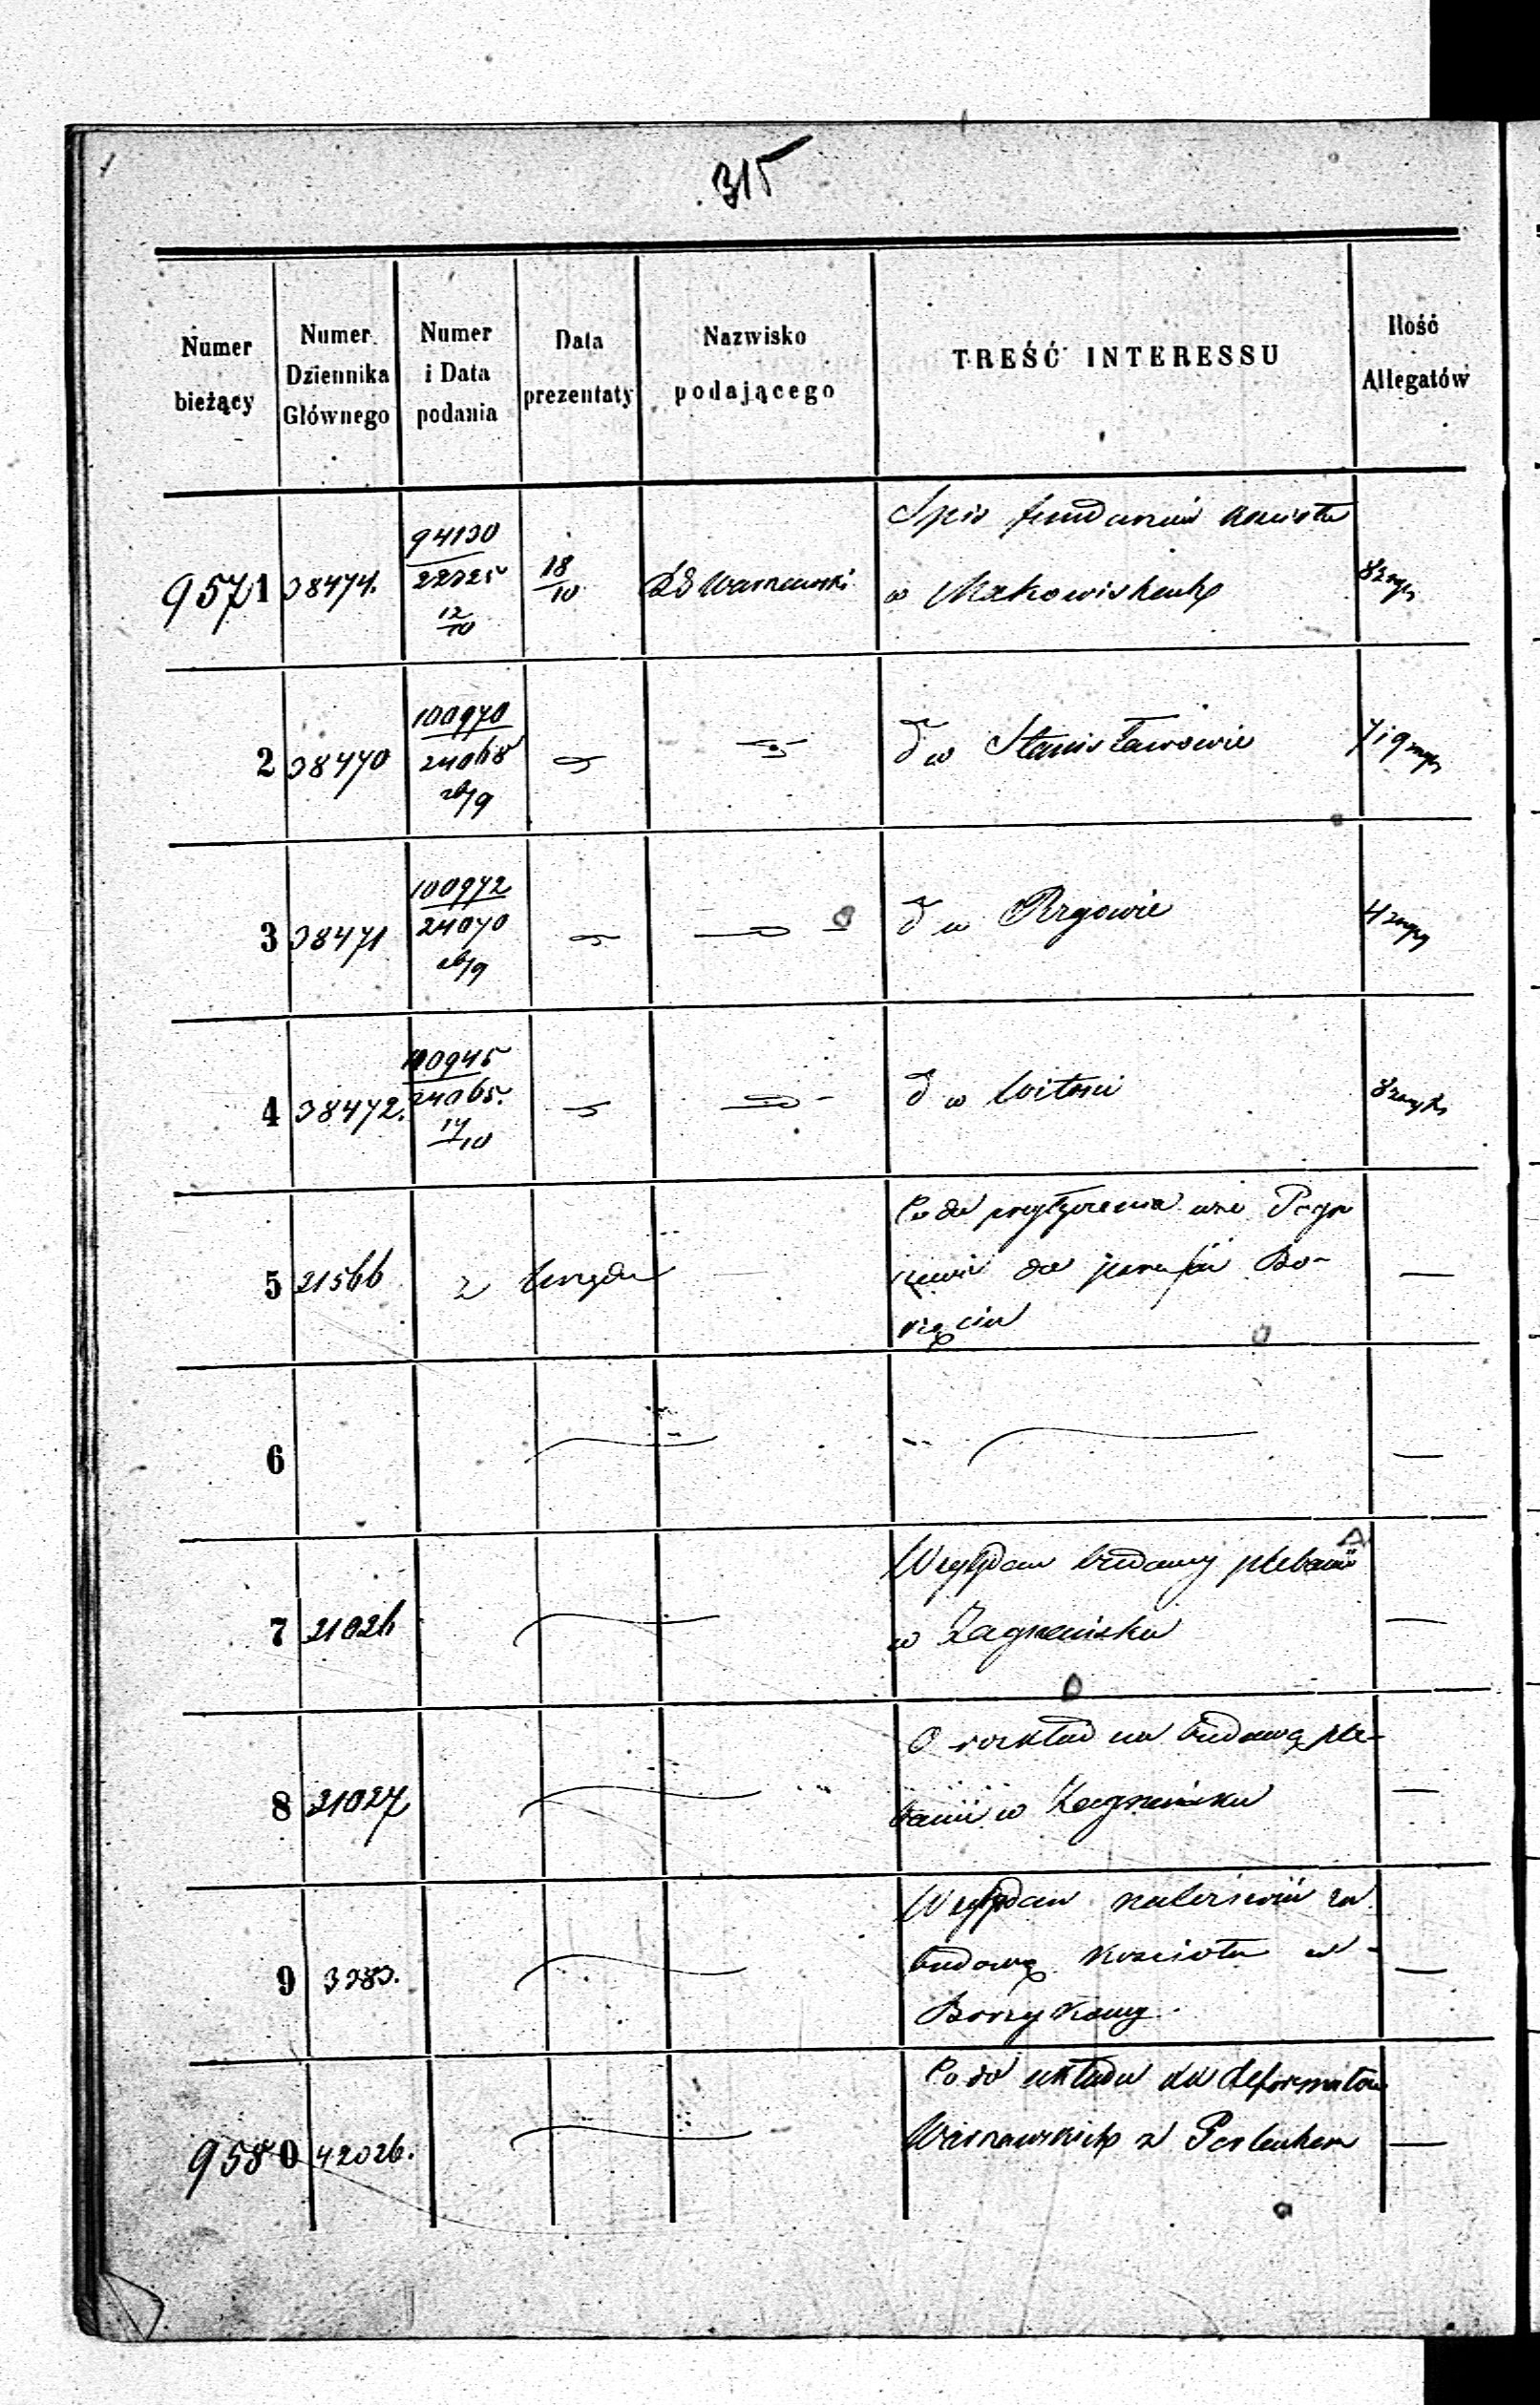 315
Numer bieżący
Numer Dziennika Głównego
Numer i Data podania
Data prezentaty
Nazwisko podającego
TREŚĆ INTERESSU
Ilość Allegatów
9571 38474. 94130 / 22725 12/10 18/10 Warszawski Spis funduszów kościoła
w
2 38470 100970 / 24068 26/9 d w Stanisławowie
3 38471 100972 / 24070 26/9 d w Rzgowie
4 38472. 24065. 17/10 d w
5 21566 z Urzędu Co do przyłączenia wsi
do parafii Bo-
6
7 21026 Względem budowy plebanii
w Zagnańsku
8 21027 O rozkład na budowę ple-
banii w Zagnańsku
9 3383. Względem należności za
budowę kościoła w
Borzykowy.
9580 42026. Co do układu Reformatów
Warszawskich z